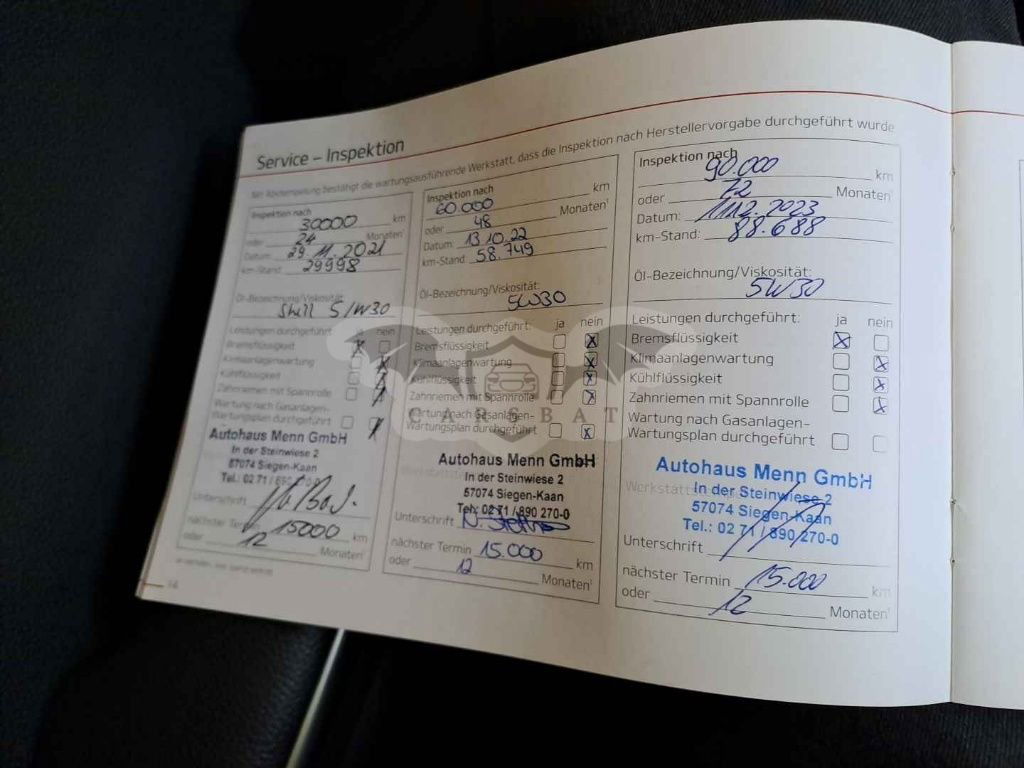 Service – Inspektion
Mit Abstempelung bestätigt die wartungsausführende Werkstatt, dass die Inspektion nach Herstellervorgabe durchgeführt wurde
Inspektion nach
30000 km
oder 24 Monaten¹
Datum: 29.11.2021
km-Stand: 29998
Öl-Bezeichnung/Viskosität:
Shell 5/W30
Leistungen durchgeführt: ja nein
Bremsflüssigkeit
Klimaanlagenwartung
Kühlflüssigkeit
Zahnriemen mit Spannrolle
Wartung nach Gasanlagen-
Wartungsplan durchgeführt
Autohaus Menn GmbH
In der Steinwiese 2
57074 Siegen-Kaan
Tel.: 02 71 / 890 270-0
Unterschrift
nächster Termin 15000 km
oder 12 Monaten¹
14
Inspektion nach
60.000 km
oder 48 Monaten¹
Datum: 13.10.22
km-Stand 58.749
Öl-Bezeichnung/Viskosität:
5W30
Leistungen durchgeführt: ja nein
Bremsflüssigkeit
Klimaanlagenwartung
Kühlflüssigkeit
Zahnriemen mit Spannrolle
Wartung nach Gasanlagen-
Wartungsplan durchgeführt
Autohaus Menn GmbH
In der Steinwiese 2
57074 Siegen-Kaan
Tel.: 02 71 / 890 270-0
Unterschrift
nächster Termin 15.000 km
oder 12 Monaten¹
Inspektion nach
90.000 km
oder 72 Monaten¹
Datum: 11.12.2023
km-Stand: 88.688
Öl-Bezeichnung/Viskosität:
5W30
Leistungen durchgeführt: ja nein
Bremsflüssigkeit
Klimaanlagenwartung
Kühlflüssigkeit
Zahnriemen mit Spannrolle
Wartung nach Gasanlagen-
Wartungsplan durchgeführt
Autohaus Menn GmbH
In der Steinwiese 2
57074 Siegen-Kaan
Tel.: 02 71 / 890 270-0
Unterschrift
nächster Termin 15.000 km
oder 12 Monaten¹
CARSBAT